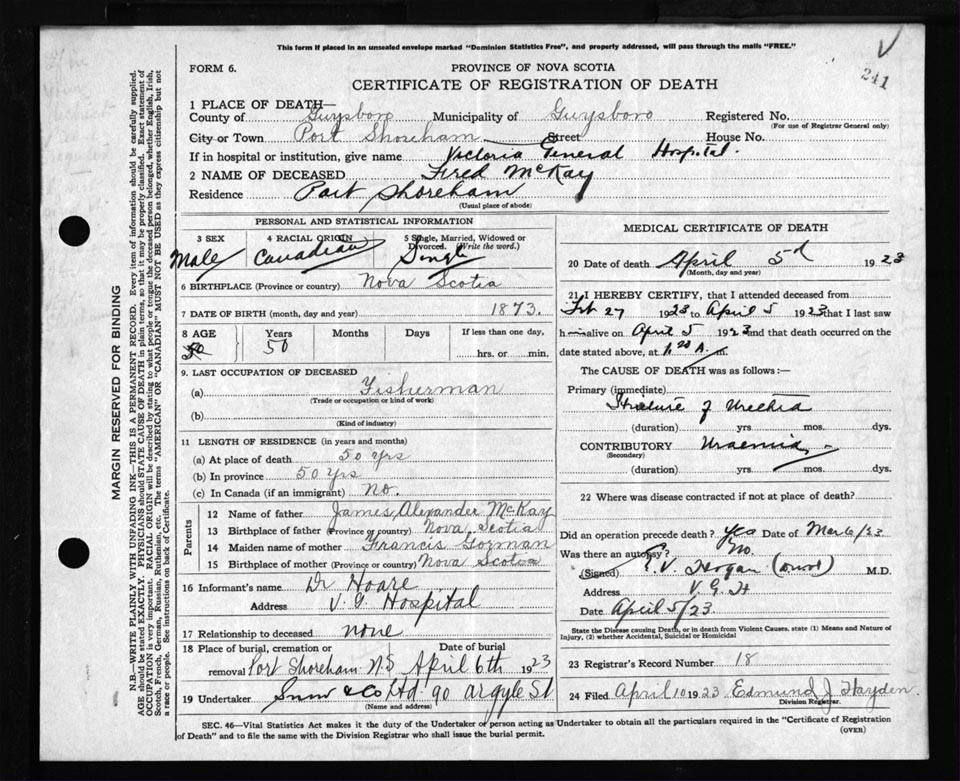 This form if placed in an unsealed envelope marked "Dominion Statistics Free", and properly addressed, will pass through the mails "FREE."
FORM 6.
PROVINCE OF NOVA SCOTIA
241
CERTIFICATE OF REGISTRATION OF DEATH
1 PLACE OF DEATH—
County of Guysboro Municipality of Guysboro Registered No.
(For use of Registrar General only)
City or Town Port Shoreham Street House No.
If in hospital or institution, give name Victoria General Hospital.
2 NAME OF DECEASED Fred McKay
Residence Port Shoreham
(Usual place of abode)
PERSONAL AND STATISTICAL INFORMATION
3 SEX 4 RACIAL ORIGIN 5 Single, Married, Widowed or Divorced. (Write the word.)
Male Canadian Single
6 BIRTHPLACE (Province or country) Nova Scotia
7 DATE OF BIRTH (month, day and year) 1873.
8 AGE Years Months Days If less than one day,
50 hrs. or min.
9. LAST OCCUPATION OF DECEASED
(a) Fisherman
(Trade or occupation or kind of work)
(b)
(Kind of industry)
11 LENGTH OF RESIDENCE (in years and months)
(a) At place of death 50 yrs
(b) In province 50 yrs
(c) In Canada (if an immigrant) no.
Parents
12 Name of father James Alexander McKay
13 Birthplace of father (Province or country) Nova Scotia
14 Maiden name of mother Francis Gorman
15 Birthplace of mother (Province or country) Nova Scotia
16 Informant's name Dr Hoare
Address V. G. Hospital
17 Relationship to deceased none
18 Place of burial, cremation or Date of burial
removal Port Shoreham N.S April 6th 1923
19 Undertaker Snow & Co Ltd. 90 Argyle St
(Name and address)
MEDICAL CERTIFICATE OF DEATH
20 Date of death April 5th 1923
(Month, day and year)
21 I HEREBY CERTIFY, that I attended deceased from
Feb 27 1923 to April 5 1923 that I last saw
him alive on April 5 1923 and that death occurred on
date stated above, at A. m.
The CAUSE OF DEATH was as follows:—
Primary (immediate)
Stricture of Urethra
(duration) yrs. mos. dys.
CONTRIBUTORY Uraemia
(Secondary)
(duration) yrs. mos. dys.
22 Where was disease contracted if not at place of death?
Did an operation precede death? yes Date of Mar 6/23
Was there an autopsy? No.
(Signed) Hogan M.D.
Address V. G. H
Date April 5/23.
State the Disease causing Death, or in death from Violent Causes, state (1) Means and Nature of
Injury, (2) whether Accidental, Suicidal or Homicidal
23 Registrar's Record Number 18
24 Filed April 10 1923 Edmund J. Hayden.
Division Registrar.
SEC. 46—Vital Statistics Act makes it the duty of the Undertaker or person acting as Undertaker to obtain all the particulars required in the "Certificate of Registration
of Death" and to file the same with the Division Registrar who shall issue the burial permit.
(OVER)
MARGIN RESERVED FOR BINDING
N.B.—WRITE PLAINLY WITH UNFADING INK—THIS IS A PERMANENT RECORD. Every item of information should be carefully supplied.
AGE should be stated EXACTLY. PHYSICIANS should STATE CAUSE OF DEATH in plain terms, so that it may be properly classified. Exact statement of
OCCUPATION is very important. RACIAL ORIGIN will be described by stating to what people or tongue the deceased person belonged, whether English, Irish,
Scotch, French, German, Russian, Ruthenian, etc. The terms "AMERICAN" OR "CANADIAN" MUST NOT BE USED as they express citizenship but not
a race or people. See instructions on back of Certificate.